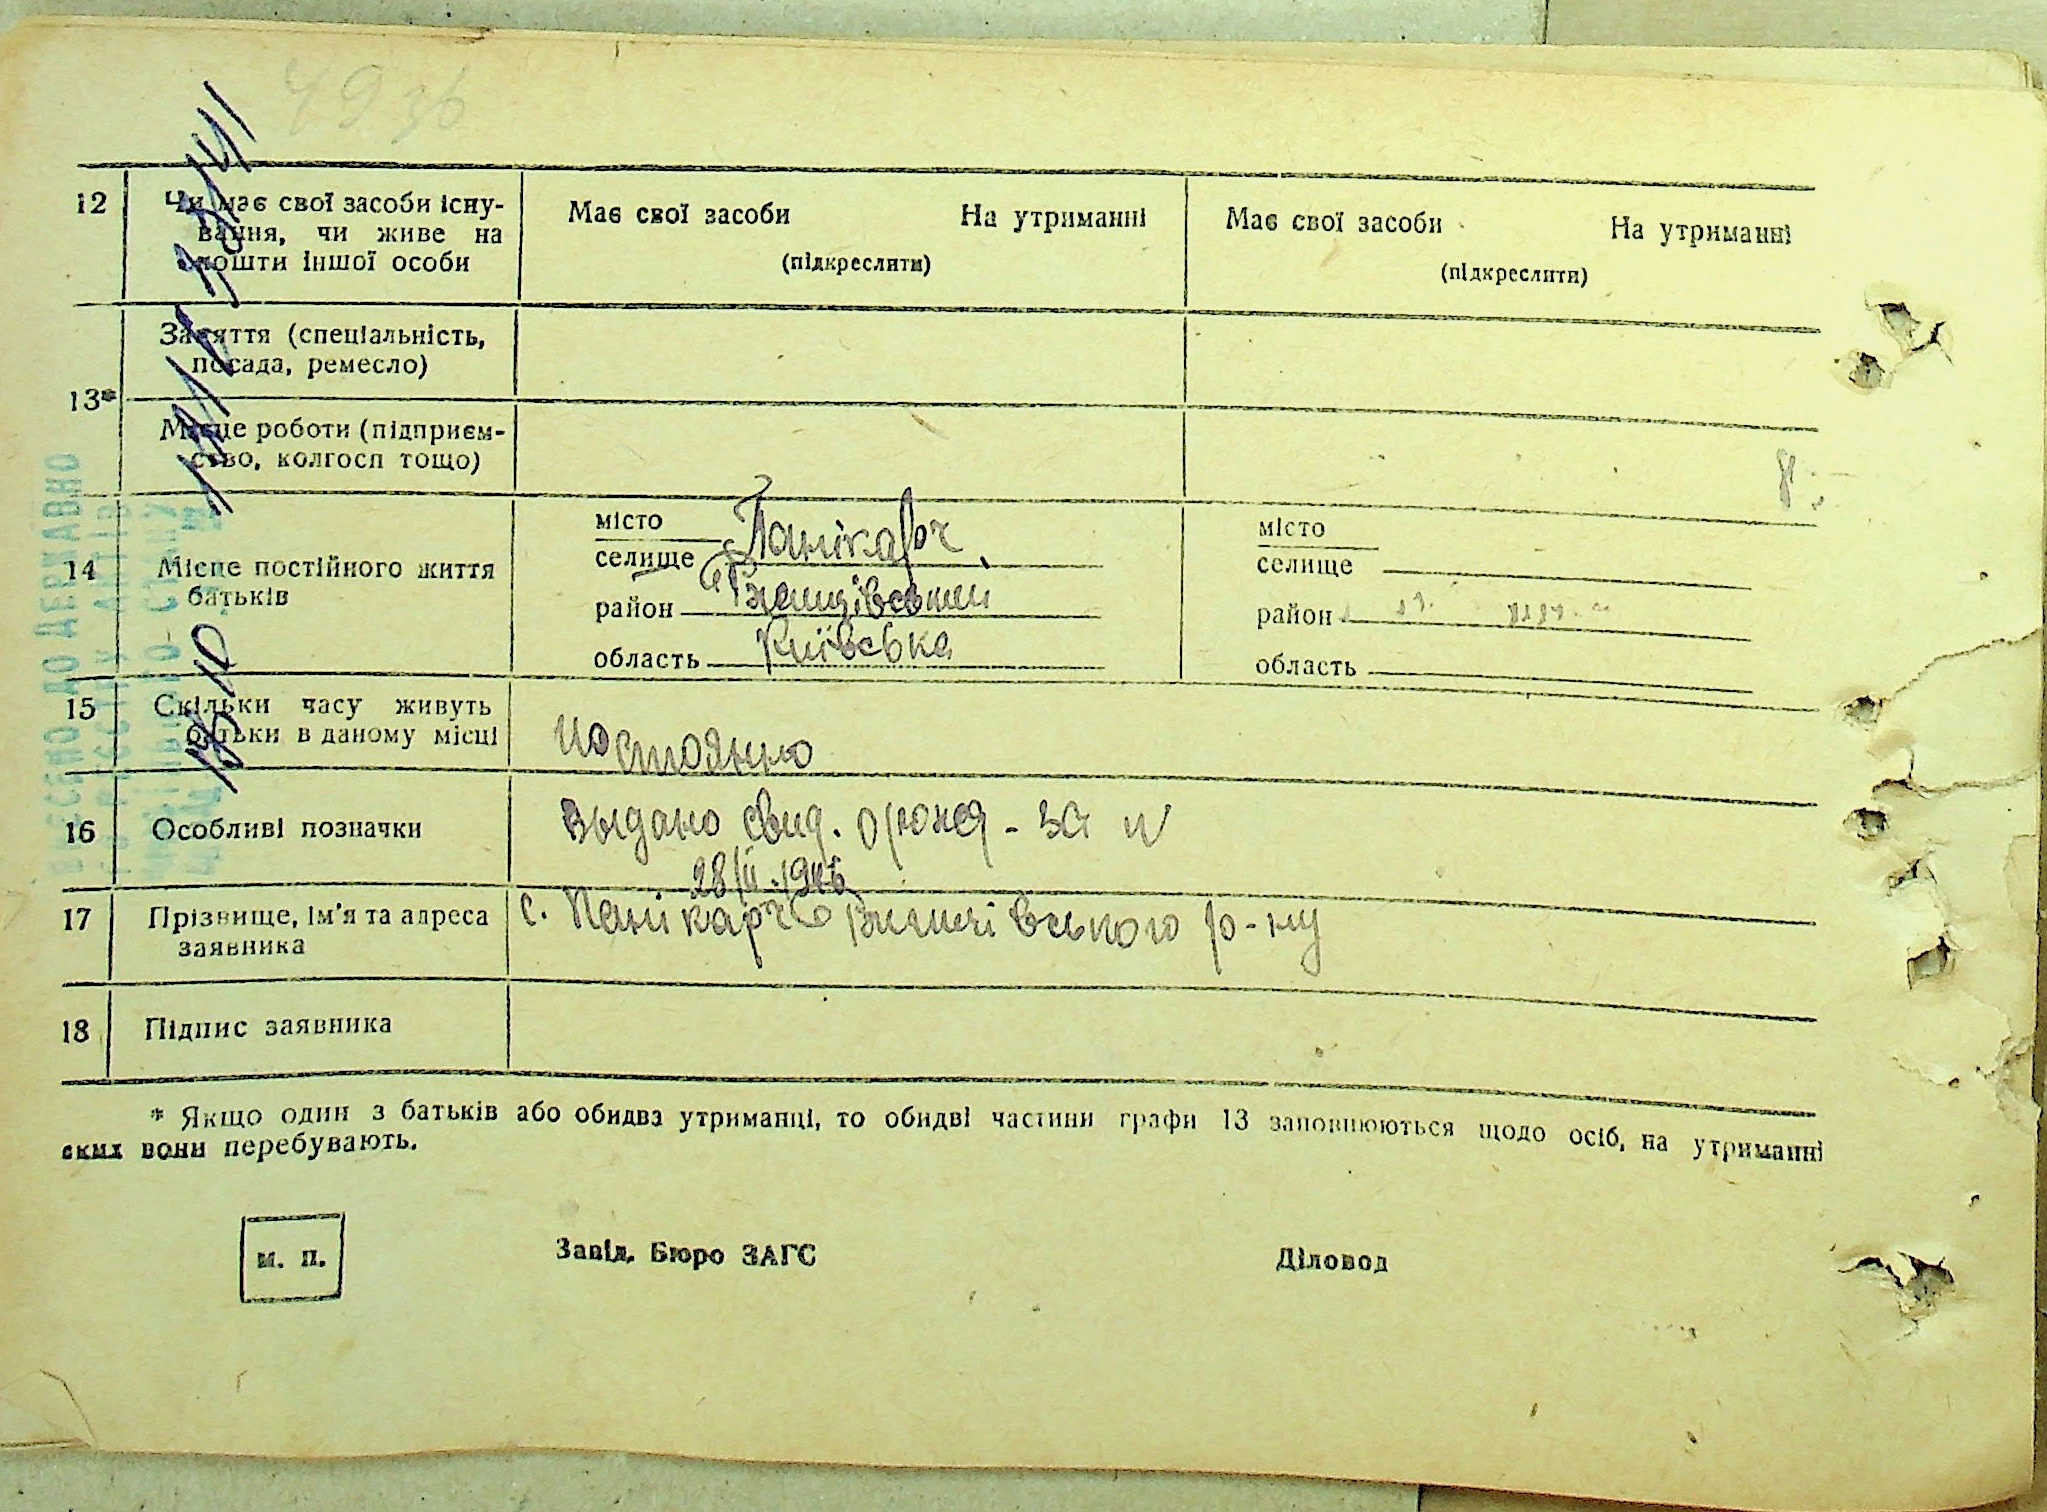 49 зв
12 Чи має свої засоби існу-
вання, чи живе на
кошти іншої особи
Має свої засоби На утриманні
(підкреслити)
Має свої засоби На утриманні
(підкреслити)
13*
Заняття (спеціальність,
посада, ремесло)
Місце роботи (підприєм-
ство, колгосп тощо)
14 Місце постійного життя
батьків
місто
селище Панікарч
район Ржищівський
область Київська
місто
селище
район
область
15 Скільки часу живуть
батьки в даному місці
постоянно
16 Особливі позначки
Выдано свид. о рожд-за №
28/II.1946
17 Прізвище, ім'я та адреса
заявника
с. Панікарча Ржищівського р-ну
18 Підпис заявника
* Якщо один з батьків або обидва утриманці, то обидві частини графи 13 заповнюються щодо осіб, на утриманні
яких вони перебувають.
м. п.
Завід. Бюро ЗАГС
Діловод